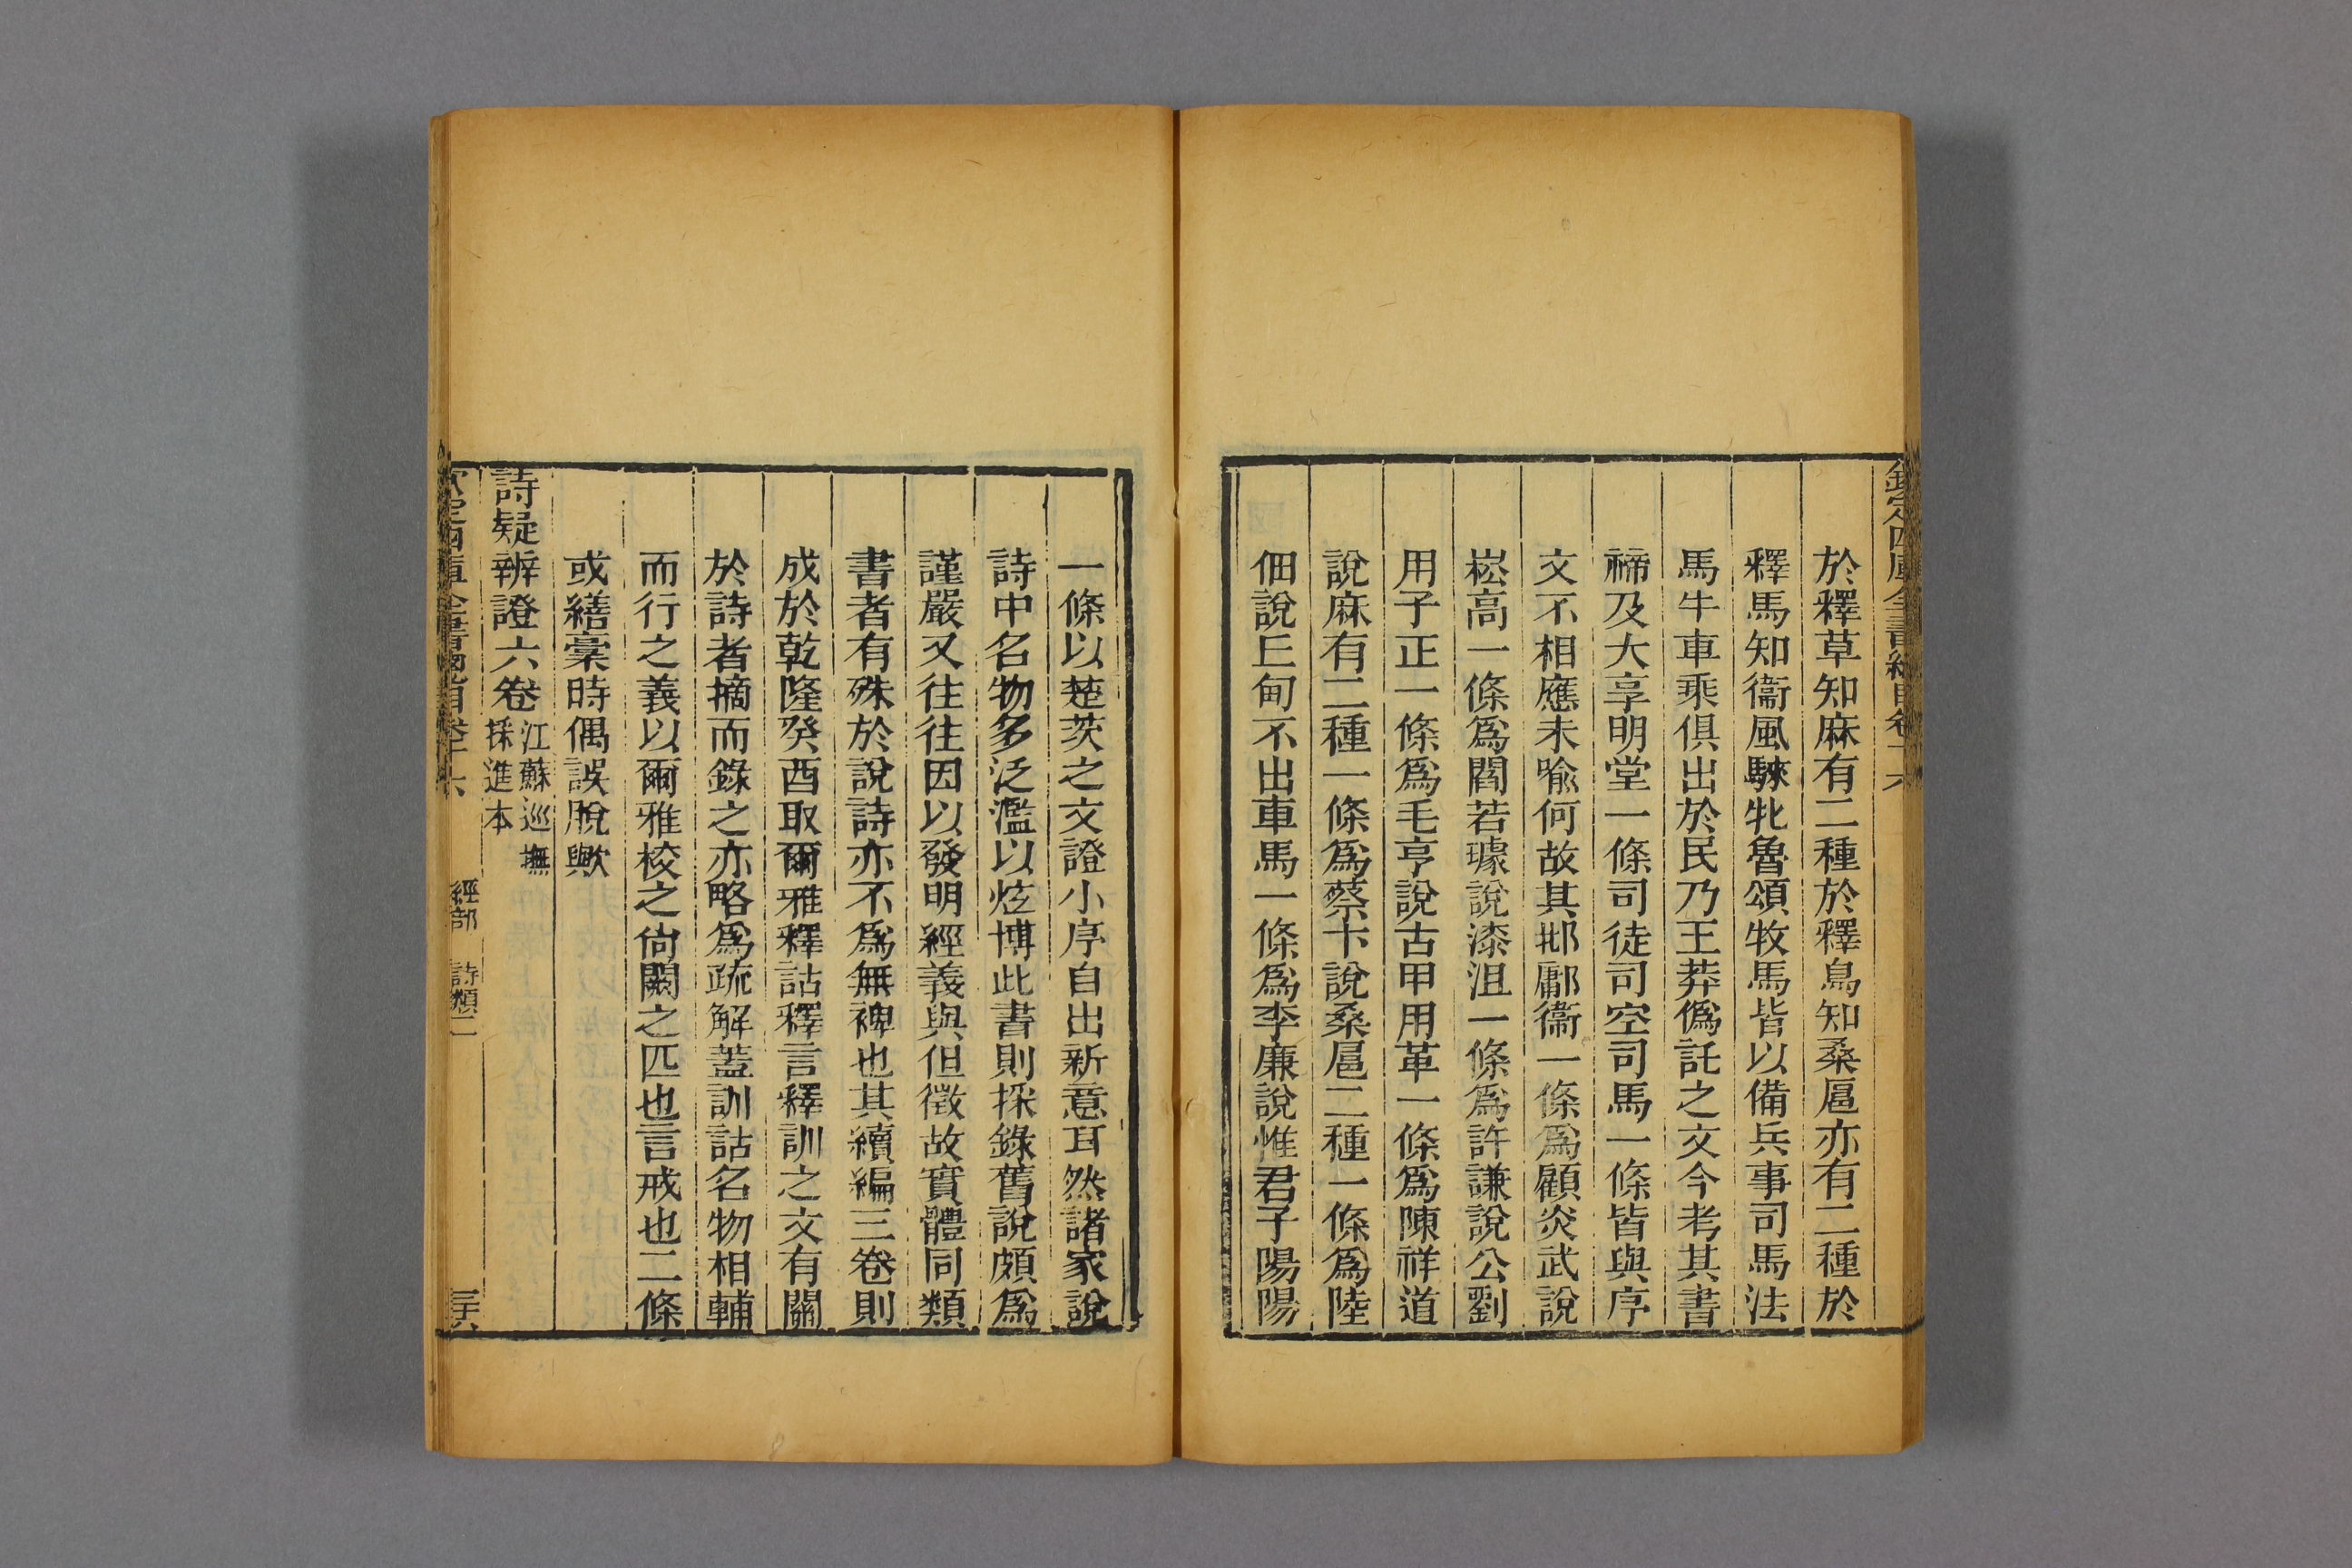 於釋草知麻有二種於釋鳥知桑扈亦有二種於
釋馬知衞風騋牝魯頌牧馬皆以備兵事司馬法
馬牛車乘俱出於民乃王莽僞託之文今考其書
禘及大享明堂一條司徒司空司馬一條皆與序
文不相應未喻何故其邶鄘衞一條爲顧炎武說
崧高一條爲閻若璩說漆沮一條爲許謙說公劉
用子正一條爲毛亨說古甲用革一條爲陳祥道
說麻有二種一條爲蔡卞說桑扈二種一條爲陸
佃說丘甸不出車馬一條爲李廉說惟君子陽陽
一條以楚茨之文證小序自出新意耳然諸家說
詩中名物多泛濫以炫博此書則採錄舊說頗爲
謹嚴又往往因以發明經義與但徵故實體同類
書者有殊於說詩亦不爲無裨也其續編三卷則
成於乾隆癸酉取爾雅釋詁釋言釋訓之文有關
於詩者摘而錄之亦略爲疏解蓋訓詁名物相輔
而行之義以爾雅校之尙闕之匹也言戒也二條
或繕稾時偶誤脫歟
詩疑辨證六卷
江蘇巡撫
採進本
經部 詩類二